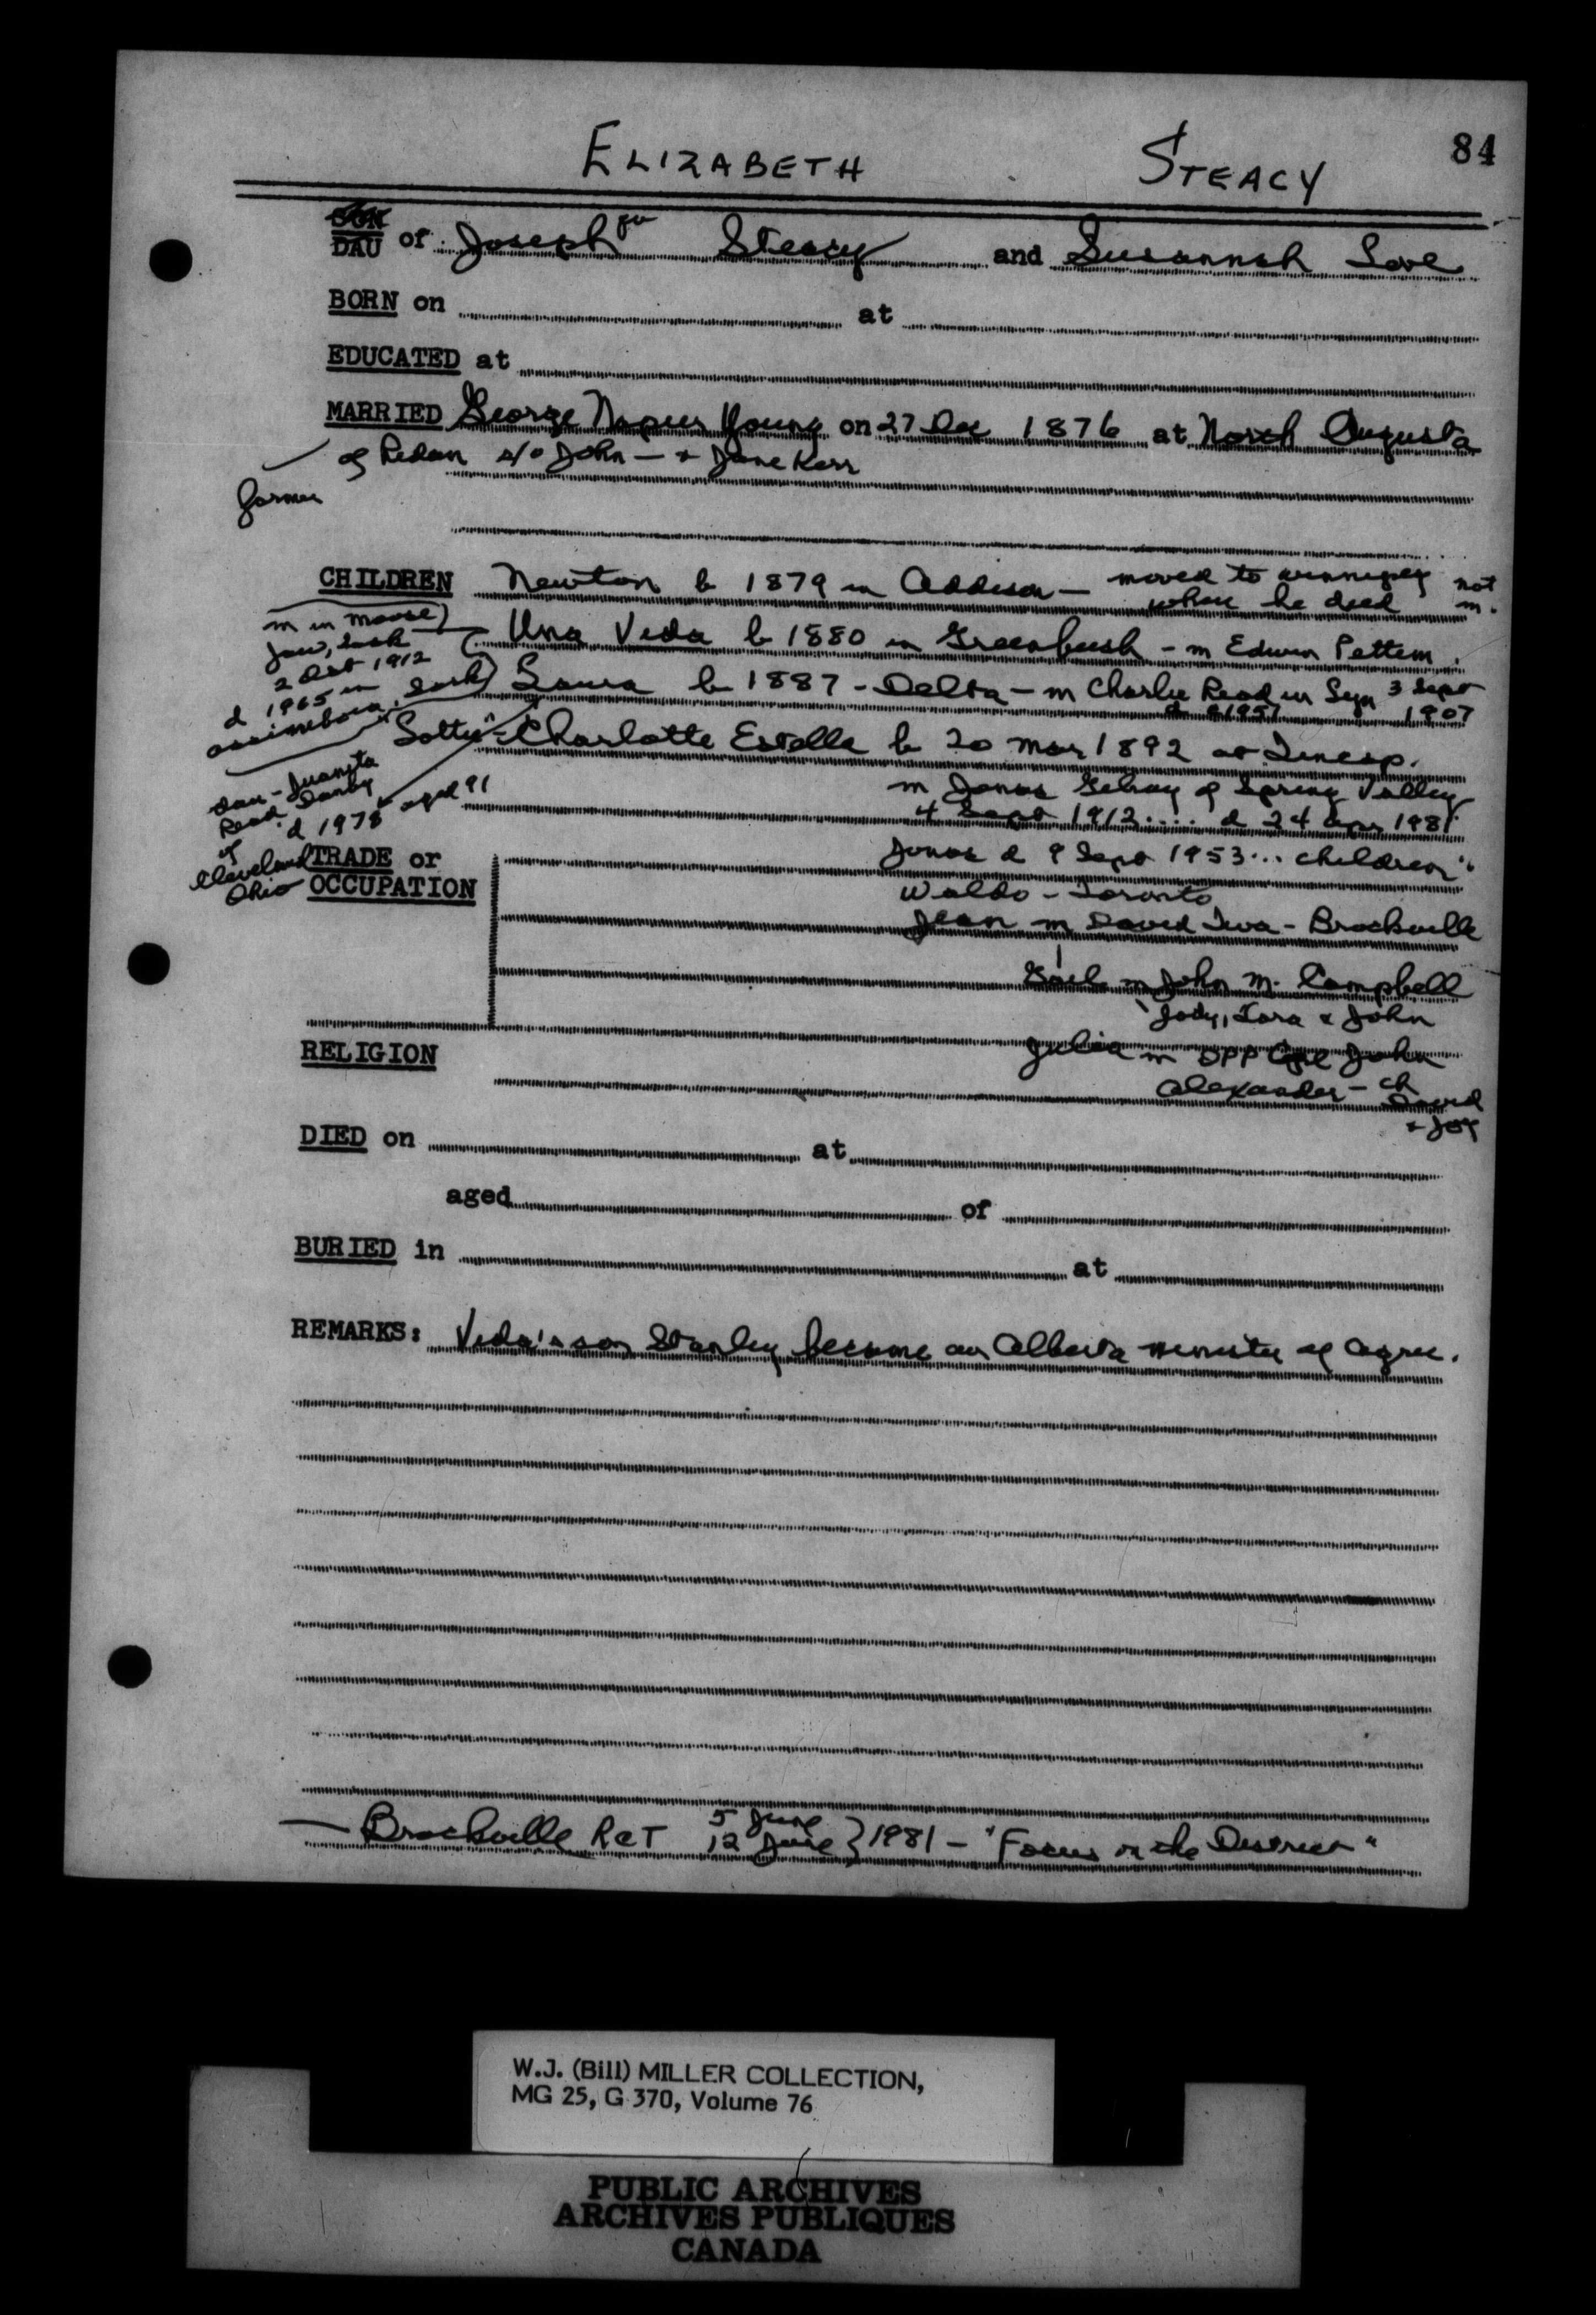 84
ELIZABETH STEACY
SON
DAU of Joseph Steacy and Susannah Love
BORN on at
EDUCATED at
MARRIED George Napier Young on 27 Dec 1876 at North Augusta
of Redan s/o John — & Jane Kerr
farmer
CHILDREN Newton b 1879 in Addison — moved to Winnipeg not
where he died m.
m in Moose
Jaw, Sask
2 Oct 1912
d 1965 in
Assiniboia, Sask
Una Veda b 1880 in Greenbush - m Edwin Pettem.
Laura b 1887 - Delta - m Charlie Read in Lyn 3 Sept
1907
d 1957
"Lottie" - Charlotte Estella b 20 Mar 1892 at
dau - Juanita
Read Danby
of
Cleveland
Ohio
d 1978 aged 91
m Jonas Gilroy of Spring Valley
4 Sept 1912 .... d 24 Apr 1981
Jonas d 9 Sept 1953 ... children
Waldo - Toronto
Jean m David Iva - Brockville
Gail m John M. Campbell
Jody, Tara & John
Julia m OPP Cpl John
Alexander - ch
David
& Joy
TRADE or
OCCUPATION
RELIGION
DIED on at
aged of
BURIED in at
REMARKS: Veda's son Stanley became an Alberta minister of Agric.
— Brockville R&T 5 June
12 June } 1981 - "Focus on the District"
W.J. (Bill) MILLER COLLECTION,
MG 25, G 370, Volume 76
PUBLIC ARCHIVES
ARCHIVES PUBLIQUES
CANADA